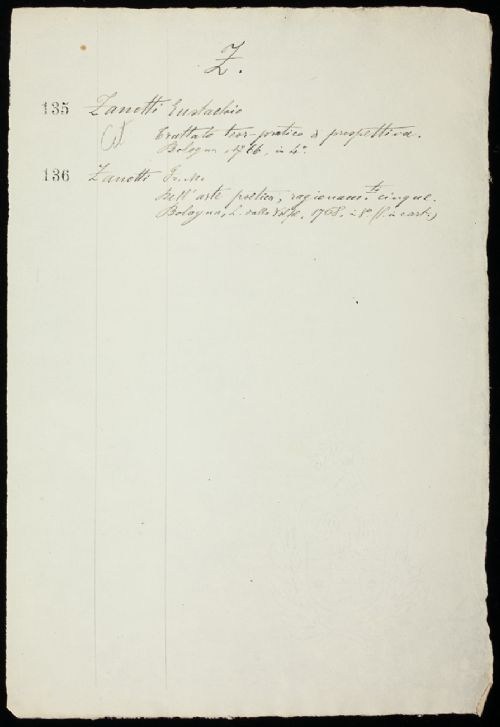 Z.
135 Zanotti Eustachio
Trattato teor-pratico di prospettiva.
Bologna, 1766, in 4°.
136 Zanotti Fr. M.
Dell'arte poetica, ragionam.ti cinque.
Bologna, L. dalla Volpe, 1768, in 8° (l. in cart.)